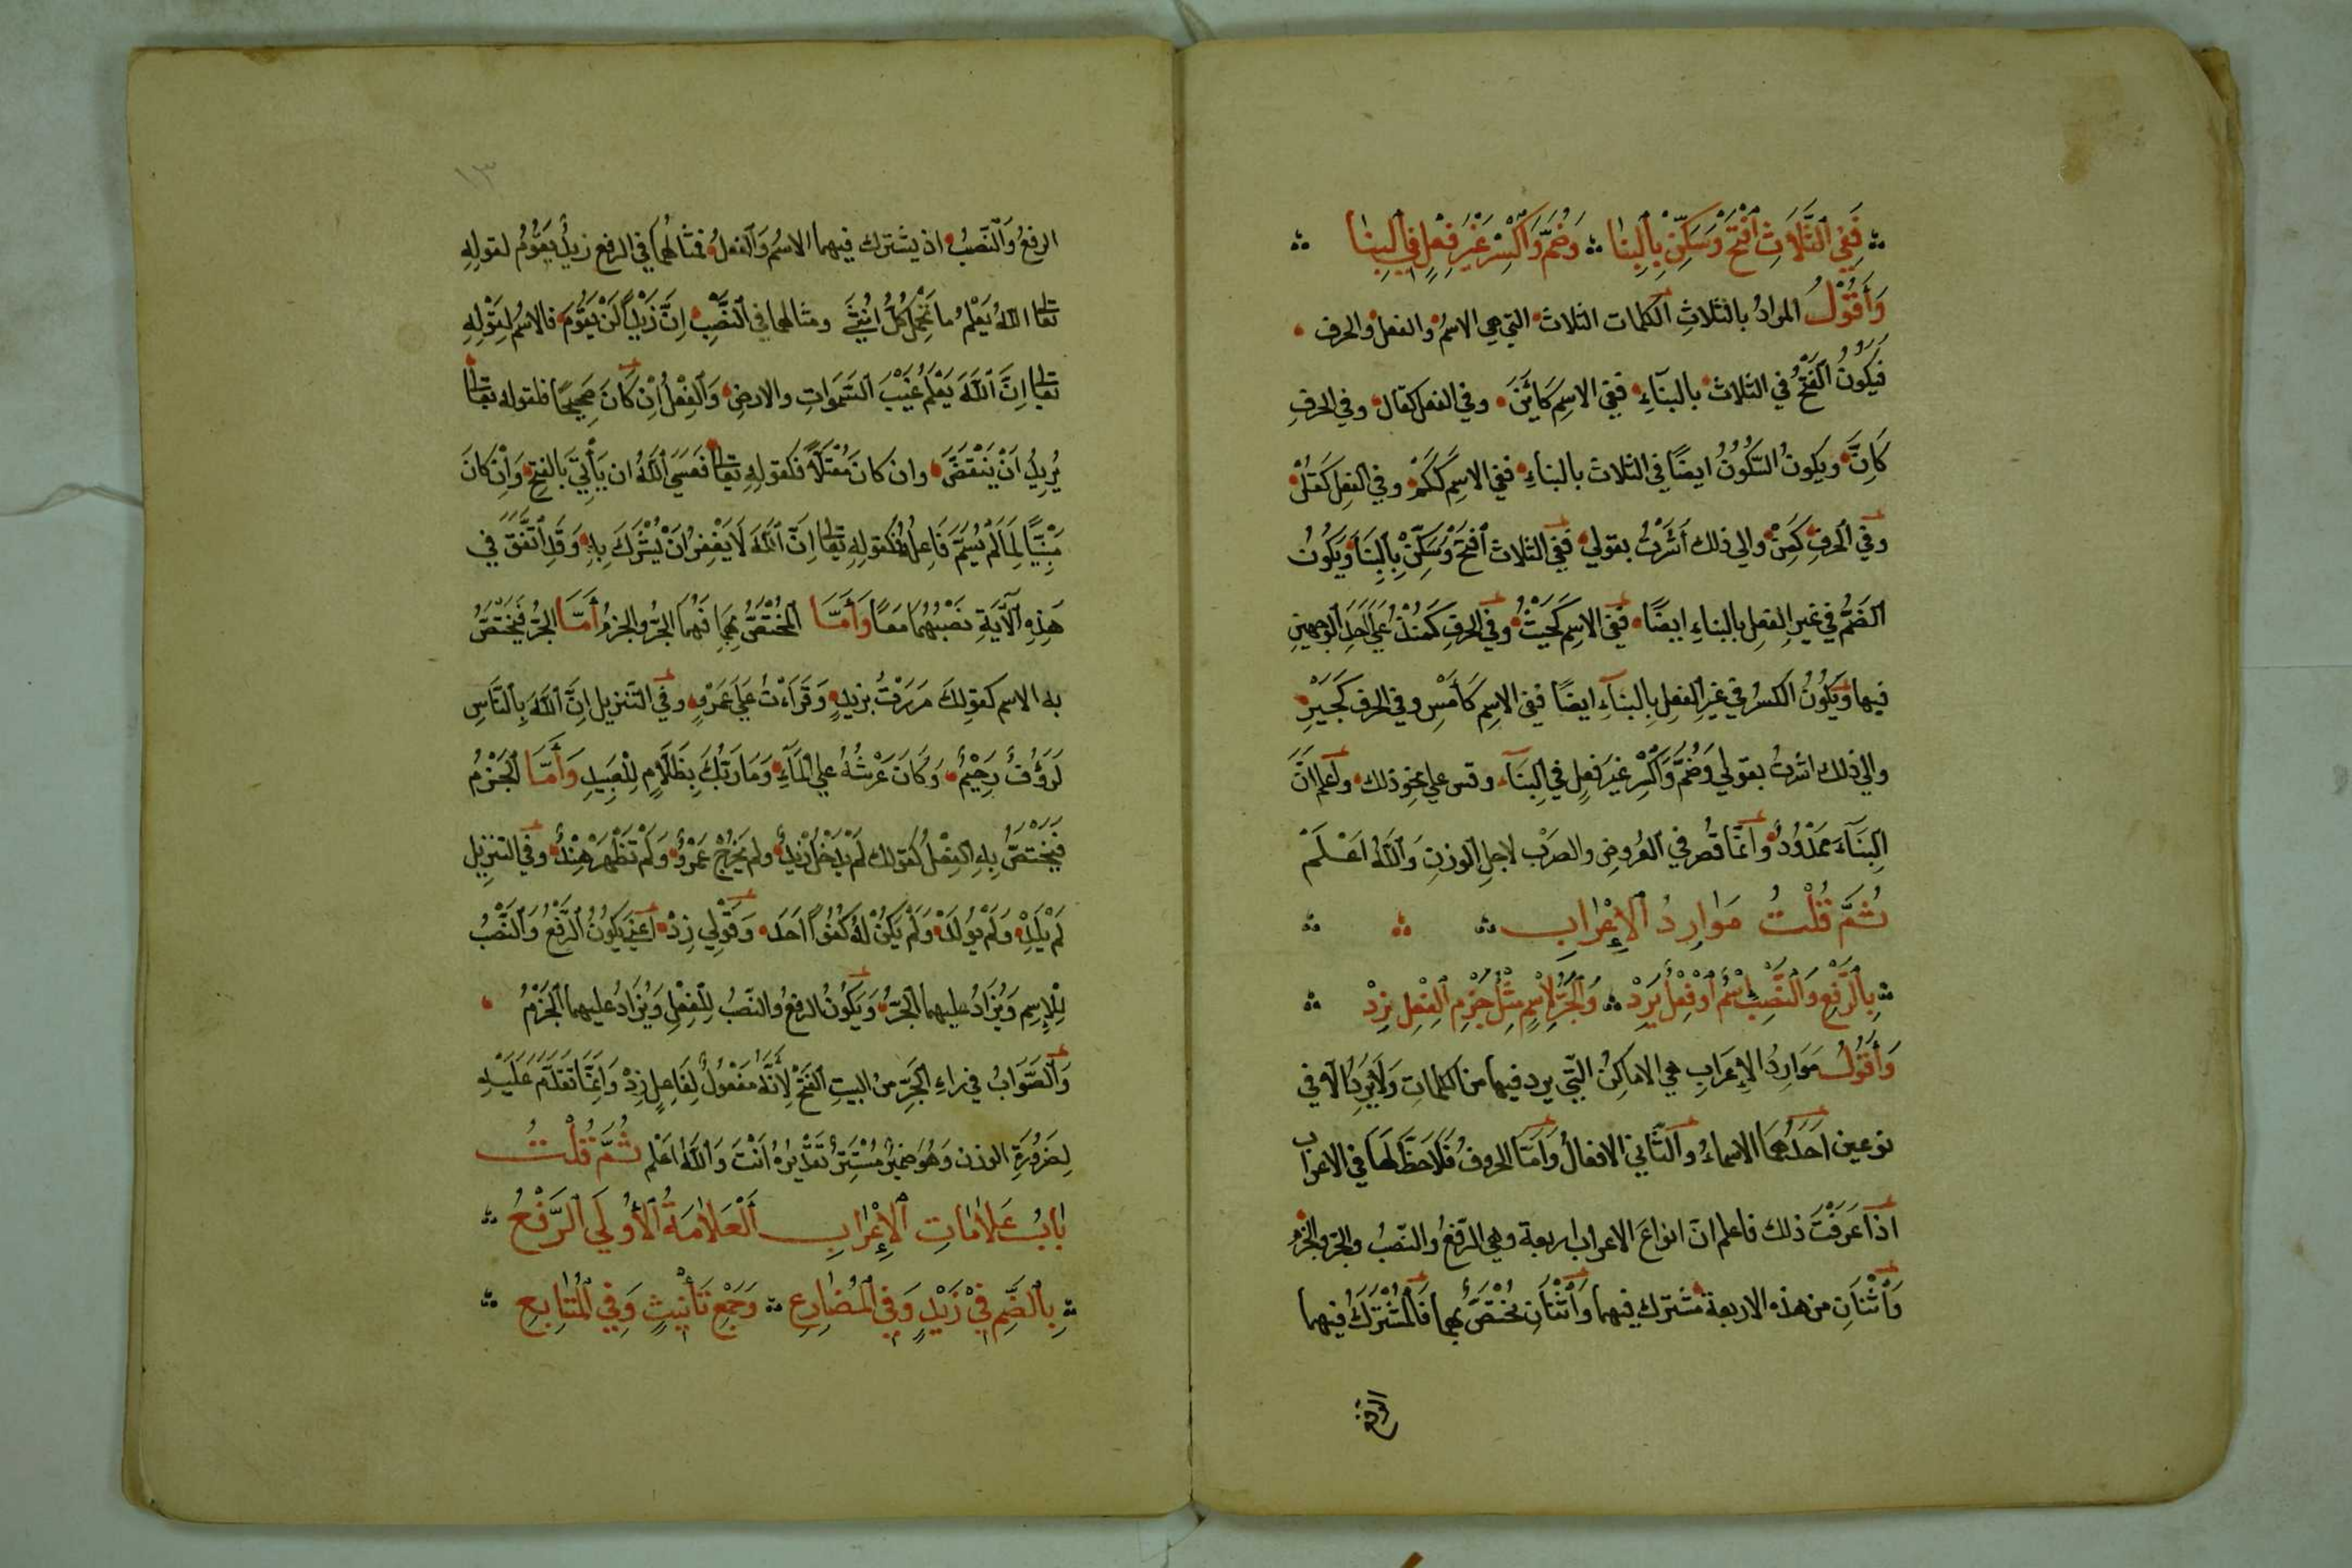 فَفِي ٱلثَّلَاثِ ٱفْتَحْ وَسَكِّنْ بِٱلْبِنَا ؞ وَضُمَّ وَٱكْسِرْ غَيْرَ فِعْلٍ فِي ٱلْبِنَا
وَأَقُوْلُ المرادُ بالثلاثِ الكلمات الثلاث التي هي الاسمُ والفعل والحرف
فيكُونُ الفَتْحُ في الثلاث بالبنآءِ ففي الاسِم كَأَيْنَ وفي الفعل كقالَ وفي الحرفِ
كَاِنَّ ويكونُ السُّكُونُ ايضًا في الثلاث بالبناءِ ففي الاسِم كَكَمْ وفي الفِعل كَقُلْ
وفي الحرفِ كَمِنْ والى ذلك أَشَرْتُ بقولي ففي الثلاث ٱفتَحْ وَسَكِّنْ بِالْبِنَا وَيَكُونُ
الضَمُّ في غيرِ الفعِلِ بالبناءِ ايضًا ففي الاسِم كَحَيْثُ وفي الحرفِ كَمُنْذُ عَلَى اَحَدِ الوجهينِ
فيها وَيَكُونُ الكسرُ في غيْرِ الفعِلِ بِالبنآءِ ايضًا ففي الاسِم كَأَمْسِ وفي الحرف كَجَيْرِ
والى ذلك اشرتُ بقولي وَضُمَّ وَاكْسِرْ غيَر فعِلٍ في الِبنَآ وقس على نحِو ذلك واعلم انَّ
البِنَآءَ مَمْدُوْدٌ وانّمَا قُصر في العَروضِ والضرْب لاجلِ الوزنِ وَاللهُ اعْلَمْ
ثُمَّ قُلْتُ مَوَارِدُ ٱلْإِعْرَابِ
بِٱلرَّفْعِ وَٱلنَّصْبِ ٱسْمٌ ٱوْ فِعْلٌ يَرِدْ ؞ وَٱلْجَرَّ لِاسْمٍ مِثْلُ جَزْمِ ٱلْفِعْلِ زِدْ
وَأَقُوْلُ مَوَارِدُ الإِعرَابِ هي الاماكِنُ التّي يرد فيها من الكلماتِ وَلَا يَرِدُ الّا في
نوعين اَحَدُهُمَا الاسماءُ والثَّاني الافعالُ وَاَمَّا الحروفُ فَلَا حَظَّ لَهَا في الاعراب
اذا عَرَفْتَ ذلك فاعلم انّ انواعَ الاعراب اربعة وهي الرّفعُ والنّصبُ والجرّ والجزم
وَاْثْنَانِ من هذه الاربعة مشترك فيهما وَاْثْنَانِ مُخْتَصٌّ بهما فَالْمُشْتَرَكُ فيهما
الرفع
١٣
الرفعُ وَالنّصبُ اذ يشترك فيهما الاسمُ وَالفعلُ فمثَالُهُمَا في الرفع زيدٌ يَقُوْمُ لقولِهِ
تعالى اللهُ يَعْلَمُ ما تَحْمِلُ كُلُّ اُنْثَى ومثالهما في النَّصْبِ اِنَّ زَيْدًا لَنْ يَقُوْمَ فالاسُم لِقَوْلِهِ
تعالى اِنَّ ٱللَّهَ يَعْلَمُ غَيْبَ السَّمٰوَاتِ والارضِ وَالْفِعْلُ اِنْ كَانَ صَحِيحًا فلقوله تعالى
يُرِيدُ اَنْ يَنْقَضَّ وان كان مُعْتَلًّا فلقولِهِ تعالى فَعَسَى اللهُ ان يَأْتِيَ بالفتحِ وَاِنْ كانَ
مَبْنِيًّا لِمَا لَمْ يُسَمَّ فَاعِلُهُ فلقولِهِ تعالى اِنَّ ٱللَّهَ لَا يَغْفِرُ اَنْ يُشْرَكَ بِهِ وَقَدِ اْتَّفَقَ في
هَذِهِ الْآيَةِ نَصْبُهُمَا مَعًا وَأَمَّا الْمُخْتَصُّ بِهِمَا فَهُمَا الجرُّ والجزمُ أَمَّا الجرُّ فَيَخْتَصُّ
به الاسم كقولِكَ مَرَرْتُ بزيدٍ وَقَرَاءْتُ عَلَى عَمْرٍو وفي التّنزيل اِنَّ اللهَ بِالنَّاسِ
لَرَؤُفٌ رَحِيْمٌ وَكَانَ عَرْشُهُ على الْمَآءِ وَمَا رَبُّكَ بِظَلَّامٍ لِلْعَبِيدِ وَأَمَّا الجَزْمُ
فَيَخْتَصُّ بِهِ الفِعْلُ كقولك لَمْ يَدْخُلْ زَيدٌ ولم يَخْرُجْ عَمْرٌو وَلَمْ تَظْهَرْ هِنْدٌ وفي التنزيل
لَمْ يَلِدْ وَلَمْ يُوْلَدْ وَلَمْ يَكُنْ لَهُ كُفُوًا اَحَد وَقَوْلِي زِدْ اَعْنِي يَكُونُ الرَّفْعُ وَالنَّصْبُ
لِلْاِسِمِ وَيُزَادُ عليهما الْجَرُّ وَيَكُونُ الرفعُ والنّصبُ لِلْفِعْلِ وَيُزَادُ عليهما الْجَزْمُ
وَالصَّوَابُ في راءِ الْجَرِّ من البيتِ الفَتْحُ لِأَنَّهُ مَفْعُولٌ لِفَاعِلِ زِدْ وَاِنَّمَا تَقَدَّمَ عَلَيْهِ
لِضَرُوْرَةِ الوزن وَهُوَ ضميرٌ مُسْتَتِرٌ تَقْدِيْرُهُ اَنْتَ وَاللهُ اعْلم ثُمَّ قُلْتُ
بَابُ عَلَامَاتِ ٱلْإِعْرَابِ اَلْعَلَامَةُ ٱلْأُولَى ٱلرَّفْعُ
بِٱلضَّمِّ فِيْ زَيْدٍ وَفِي ٱلْمُضَارِعِ ؞ وَجَمْعِ تَأْنِيثٍ وَفِي الْمُتَابِعِ